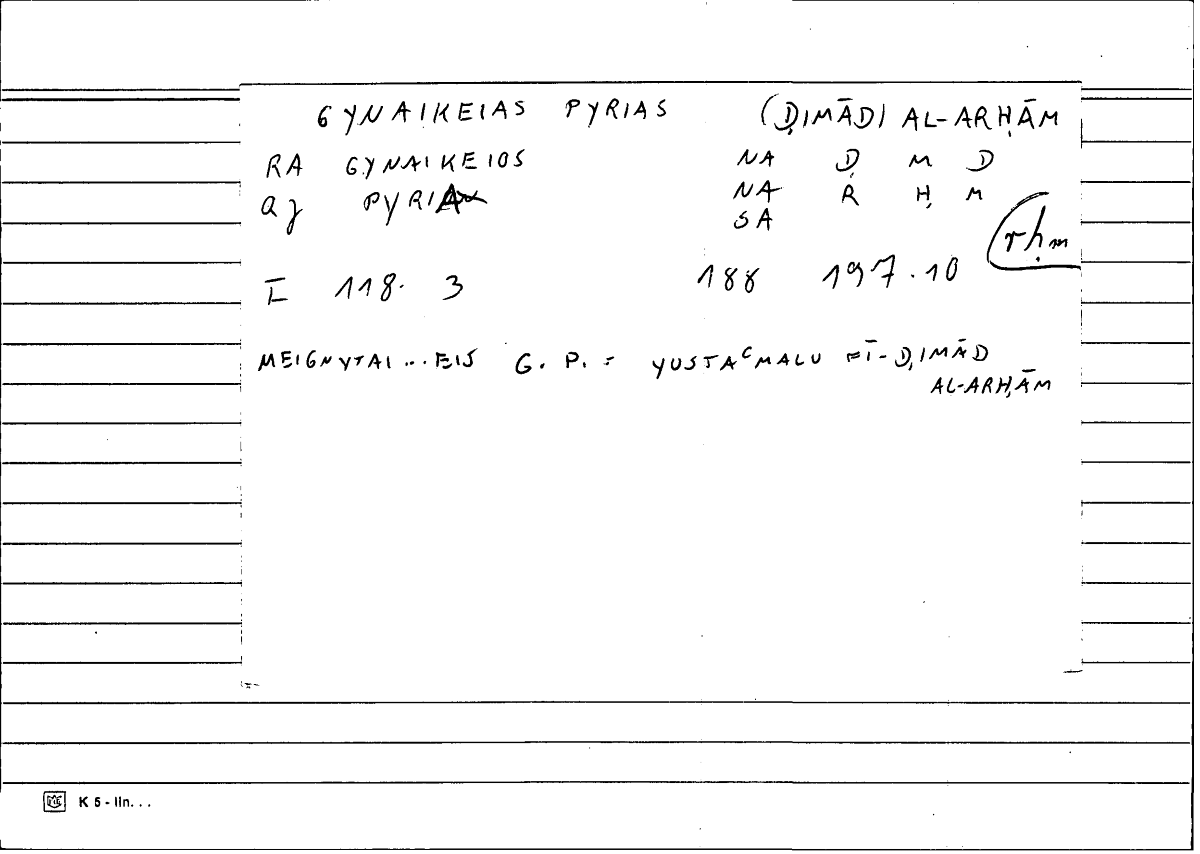 GYNAIKEIAS PYRIAS (ḌIMĀD) AL-ARḤĀM
RA GYNAIKEIOS NA Ḍ M D
PYRIA NA R Ḥ M
SA
rḥm
I 118. 3 188 197.10
MEIGNYTAI ... EIS G. P. = YUSTAᶜMALU FĪ-ḌIMĀD
AL-ARḤĀM
K 5 - lln...